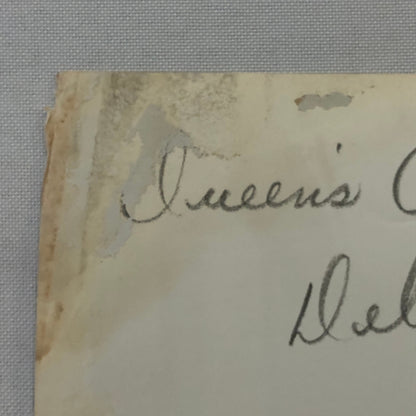 Queen's C
Del